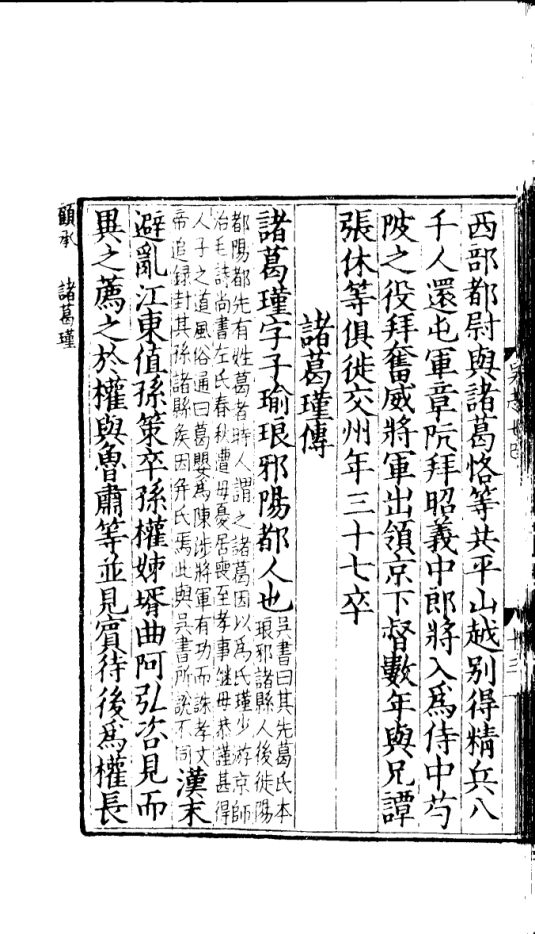 西部都尉與諸葛恪等共平山越别得精兵八
千人還屯軍章阬拜昭義中郎將入爲侍中芍
陂之役拜奮威將軍出領京下督數年與兄譚
張休等俱徙交州年三十七卒
諸葛瑾傳
諸葛瑾字子瑜琅邪陽都人也
吴書曰其先葛氏本
琅邪諸縣人後徙陽
都陽都先有姓葛者時人謂之諸葛因以爲氏瑾少游京師
治毛詩尚書左氏春秋遭母憂居喪至孝事継母恭謹甚得
人子之道風俗通曰葛嬰爲陳涉將軍有功而誅孝文
帝追録封其孫諸縣矦因并氏焉此與吴書所說不同
漢末
避亂江東值孫策卒孫權姊壻曲阿弘咨見而
異之薦之於權與魯肅等並見賓待後爲權長
顧承 諸葛瑾